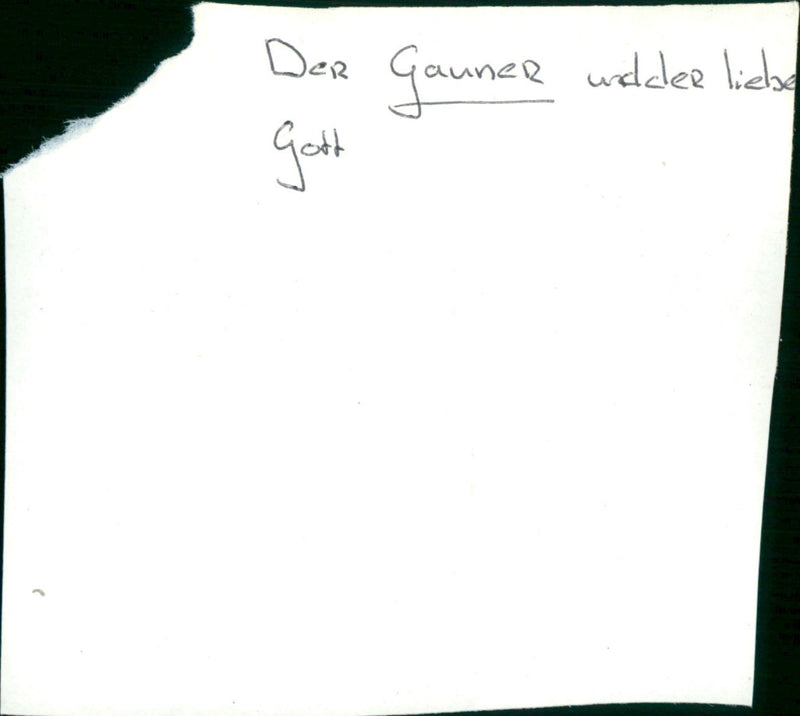 Der Gauner und der liebe
Gott